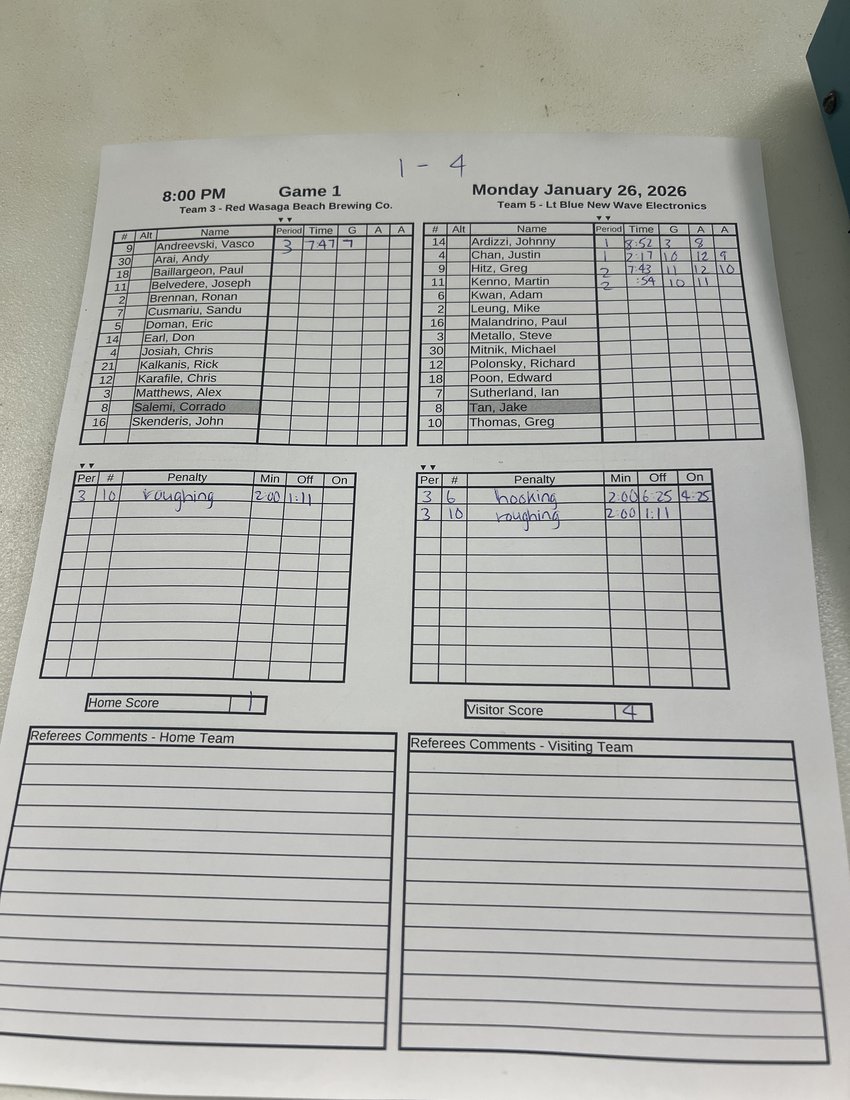 1 - 4
8:00 PM Game 1 Monday January 26, 2026
Team 3 - Red Wasaga Beach Brewing Co. Team 5 - Lt Blue New Wave Electronics
# Alt Name Period Time G A A
9 Andreevski, Vasco 3 7:47 7
30 Arai, Andy
18 Baillargeon, Paul
11 Belvedere, Joseph
2 Brennan, Ronan
7 Cusmariu, Sandu
5 Doman, Eric
14 Earl, Don
4 Josiah, Chris
21 Kalkanis, Rick
12 Karafile, Chris
3 Matthews, Alex
8 Salemi, Corrado
16 Skenderis, John
# Alt Name Period Time G A A
14 Ardizzi, Johnny 1 8:52 3 8
4 Chan, Justin 1 2:17 10 12 9
9 Hitz, Greg 2 7:43 11 12 10
11 Kenno, Martin 2 :54 10 11
6 Kwan, Adam
2 Leung, Mike
16 Malandrino, Paul
3 Metallo, Steve
30 Mitnik, Michael
12 Polonsky, Richard
18 Poon, Edward
7 Sutherland, Ian
8 Tan, Jake
10 Thomas, Greg
Per # Penalty Min Off On
3 10 roughing 2:00 1:11
Per # Penalty Min Off On
3 6 hooking 2:00 6:25 4:25
3 10 roughing 2:00 1:11
Home Score 1
Visitor Score 4
Referees Comments - Home Team
Referees Comments - Visiting Team